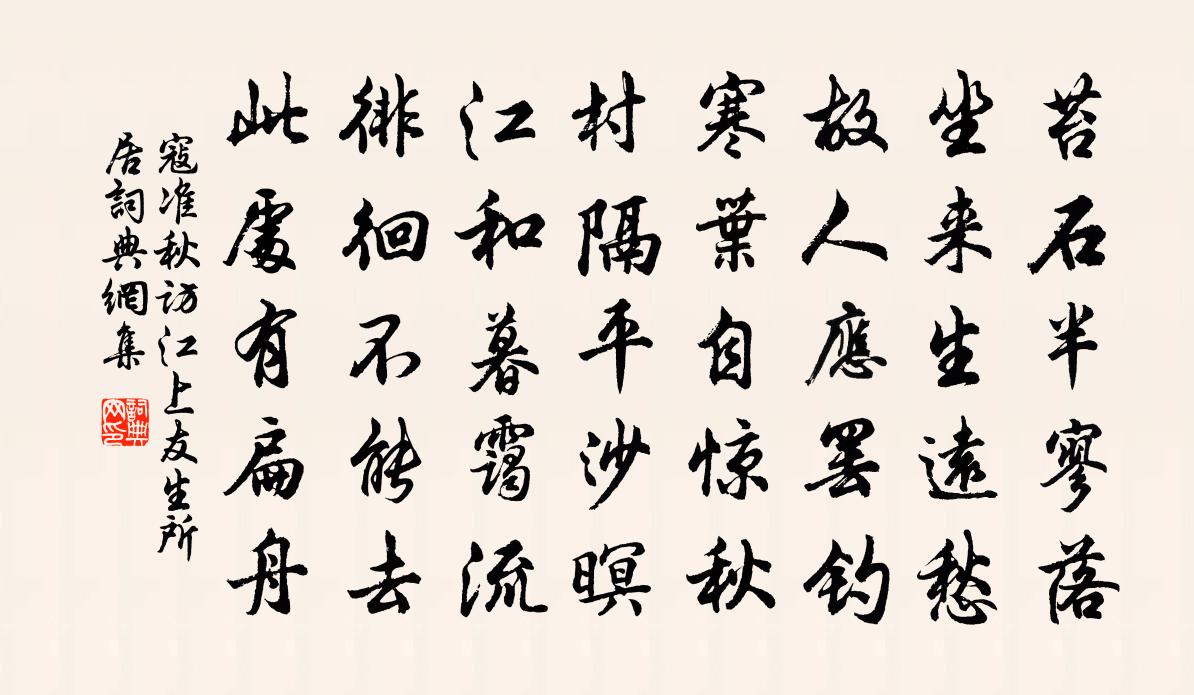 苔石半寥落
坐来生遠愁
故人應罢钓
寒葉自惊秋
村隔平沙暝
江和暮靄流
徘徊不能去
此處有扁舟
寇准秋访江上友生所
居詞典網集
詞典
网印